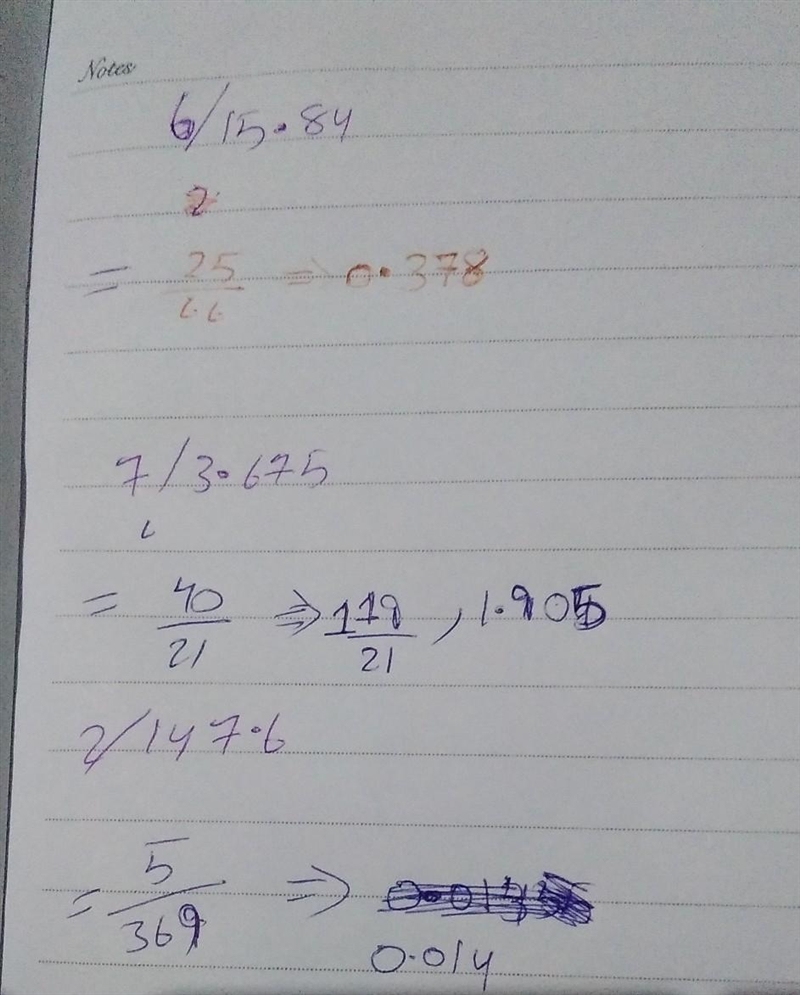 Notes
6/15.84
2
= 25/66 => 0.378
7/3.675
= 40/21 => 1 19/21, 1.905
2/147.6
= 5/369 =>
0.014